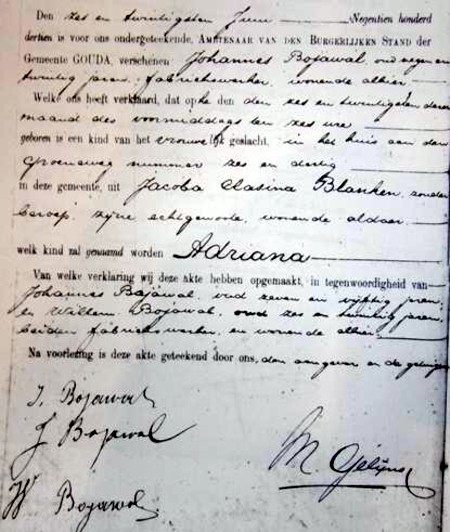 Den zes en twintigsten Juni Negentien honderd
dertien is voor ons ondergeteekende, AMBTENAAR VAN DEN BURGERLIJKEN STAND der
Gemeente GOUDA, verschenen: Johannes Bojawal, oud negen en
twintig jaren, fabriekswerker, wonende alhier
Welke ons heeft verklaard, dat op den zes en twintigsten dezer
maand des voormiddags ten zes ure
geboren is een kind van het vrouwelijk geslacht, in het huis aan den
Groeneweg nummer zes en dertig
in deze gemeente, uit Jacoba Clasina Blanken, zonder
beroep, zijne echtgenoote, wonende aldaar
welk kind zal genaamd worden Adriana
Van welke verklaring wij deze akte hebben opgemaakt, in tegenwoordigheid van
Johannes Bojawal, oud zeven en vijftig jaren,
en Willem Bojawal, oud zes en twintig jaren,
beiden fabriekswerker, en wonende alhier.
Na voorlezing is deze akte geteekend door ons, den aangever en de getuigen
J. Bojawal
J Bojawal
W Bojawal
M.